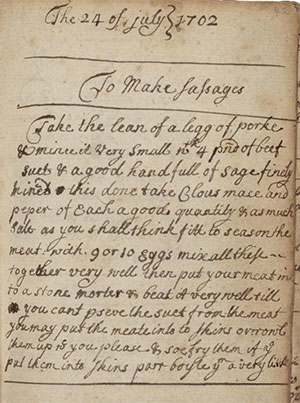 The 24 of july } 1702
To Make sassages
Take the lean of a legg of porke
& mince it very small wth 4 pnd of beef
suet & a good handfull of sage finely
minct this done take Clous mace and
peper of Each a good quantity & as much
salt as you shall think fitt to season the
meat with 9 or 10 Eggs mix all these
together very well then put your meat in
to a stone morter & beat it very well till
you cant pseve the suet from the meat
you may put the meate into skins or rowl
them up is you please & soe fry them if yu
put them into skins part boyle ym a very little